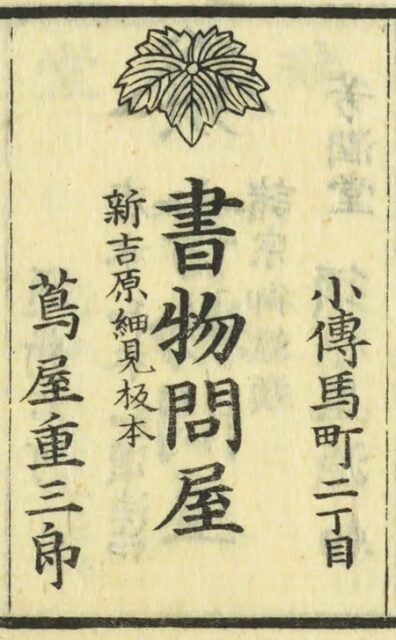 小傳馬町二丁目
書物問屋
新吉原細見板本
蔦屋重三郎